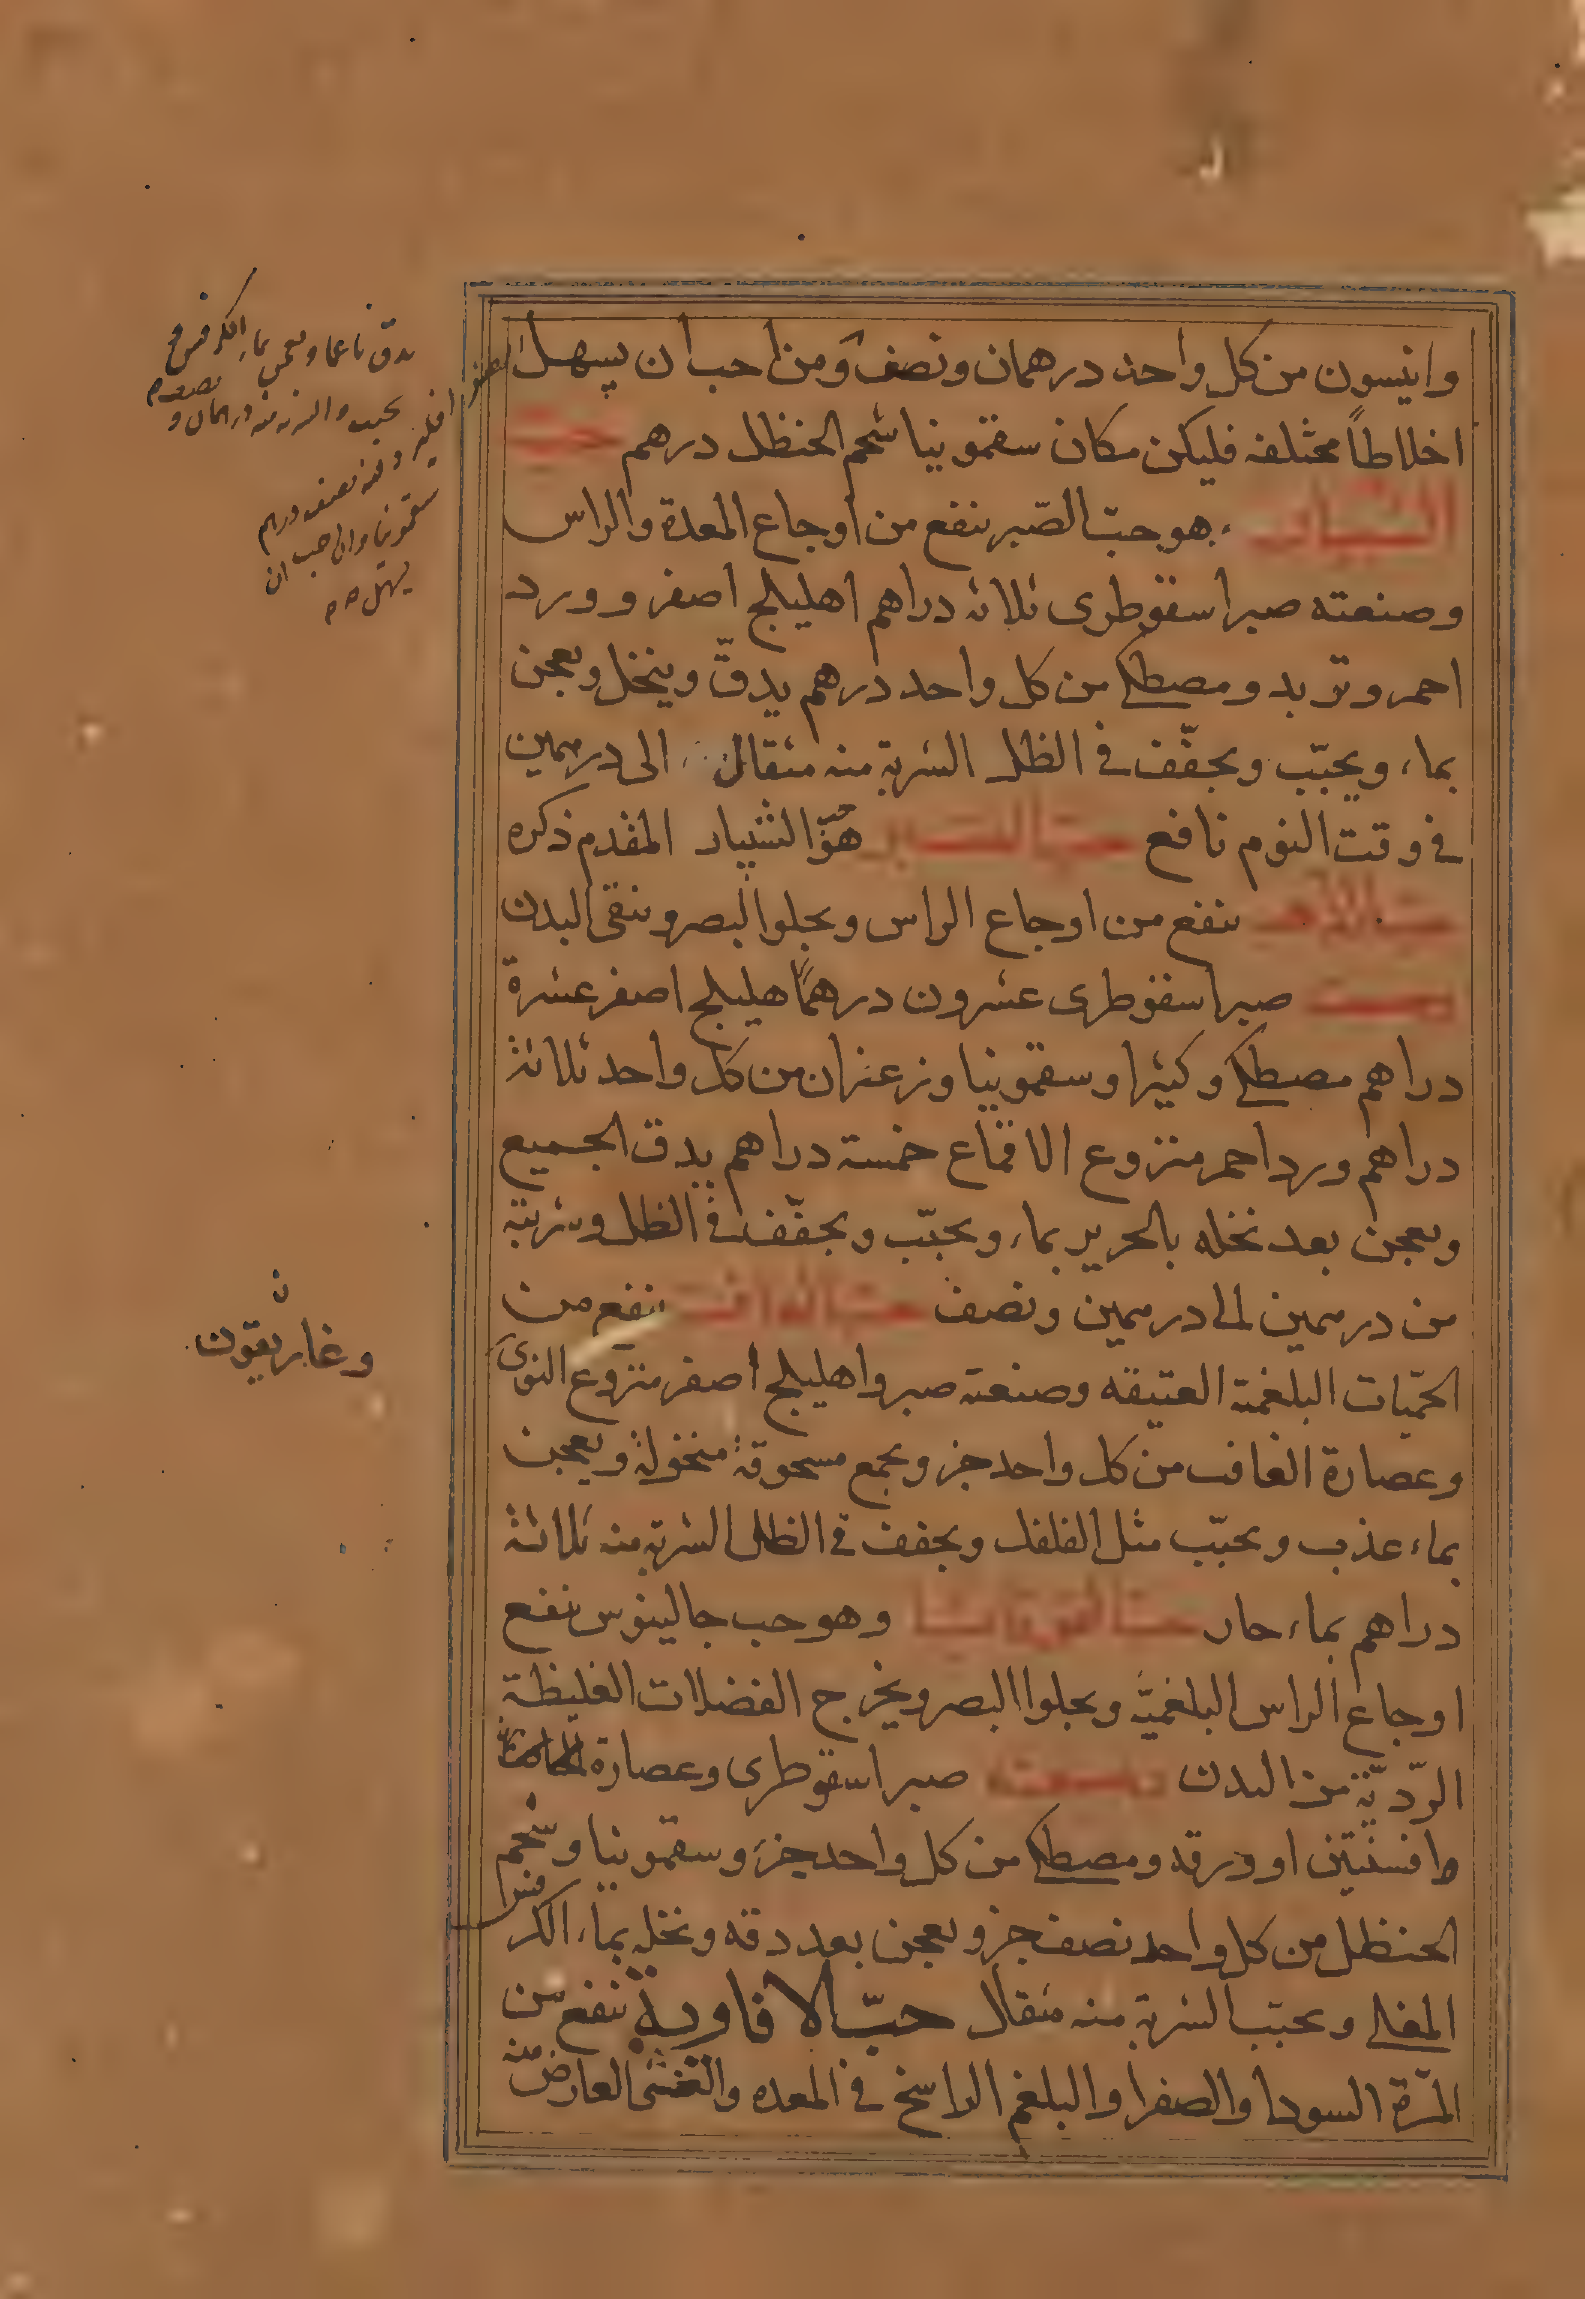 وانيسون من كل واحد درهمان ونصف ومن احب ان يسهل
اخلاطاً مختلفه فليكن مكان سقمونيا شحم الحنظل درهم حب
الشبيار هو حب الصبر ينفع من اوجاع المعدة والراس
وصنعته صبر اسقوطرى ثلاثه دراهم اهليلج اصفر وورد
احمر وتربد ومصطكى من كل واحد درهم يدق وينخل ويعجن
بماء ويحبّب ويجفّف في الظل الشربة منه مثقال الى درهمين
في وقت النوم نافع حب الصبر هو الشبيار المقدم ذكره
حب ينفع من اوجاع الراس ويجلوا البصر وينقى البدن
وصنعته صبر اسقوطرى عشرون درهماً هليلج اصفر عشرة
دراهم مصطكى وكثيرا وسقمونيا وزعفران من كل واحد ثلاثة
دراهم ورد احمر منزوع الاقماع خمسة دراهم يدق الجميع
ويعجن بعد نخله بالحرير بماء ويحبّب ويجفّف في الظل وشربته
من درهمين الى درهمين ونصف حب الغافت ينفع من
الحمّيات البلغمية العتيقه وصنعته صبر واهليلج اصفر منزوع النوى
وعصارة الغافت من كل واحد جزو يجمع مسحوقة منخولة ويعجن
بماء عذب ويحبّب مثل الفلفل ويجفف في الظل الشربة منه ثلاثة
دراهم بماء حار حب القوقايا وهو حب جالينوس ينفع
اوجاع الراس البلغمية ويجلوا البصر ويخرج الفضلات الغليظة
الرّديّة من البدن وصنعته صبر اسقوطرى وعصارة
وافسنتين او ورقه ومصطكى من كل واحد جزء وسقمونيا وشحم
الحنظل من كل واحد نصف جزو يعجن بعد دقه ونخله بماء الكرفس
المغلى ويحبّب الشربة منه مثقال حبّ الافاوية ينفع من
المرّة السودا والصفرا والبلغم الراسخ في المعده والغشى العارض منه
يدق ناعما ويعجن بماء الكرفس
يحبب والشربة منه درهمان و
نصف درهم
سقمونيا وان احب ان
يسهل
وغاريقون